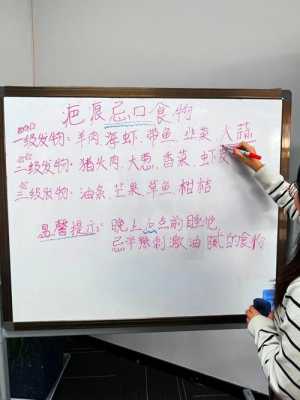 疤痕忌口食物
一级发物：羊肉.海虾.带鱼.韭菜.大蒜
二级发物：猪头肉.大葱.香菜.虾
三级发物：油条.芒果.草鱼.柑桔
温馨提示：晚上点前睡
忌辛辣刺激油腻的食物